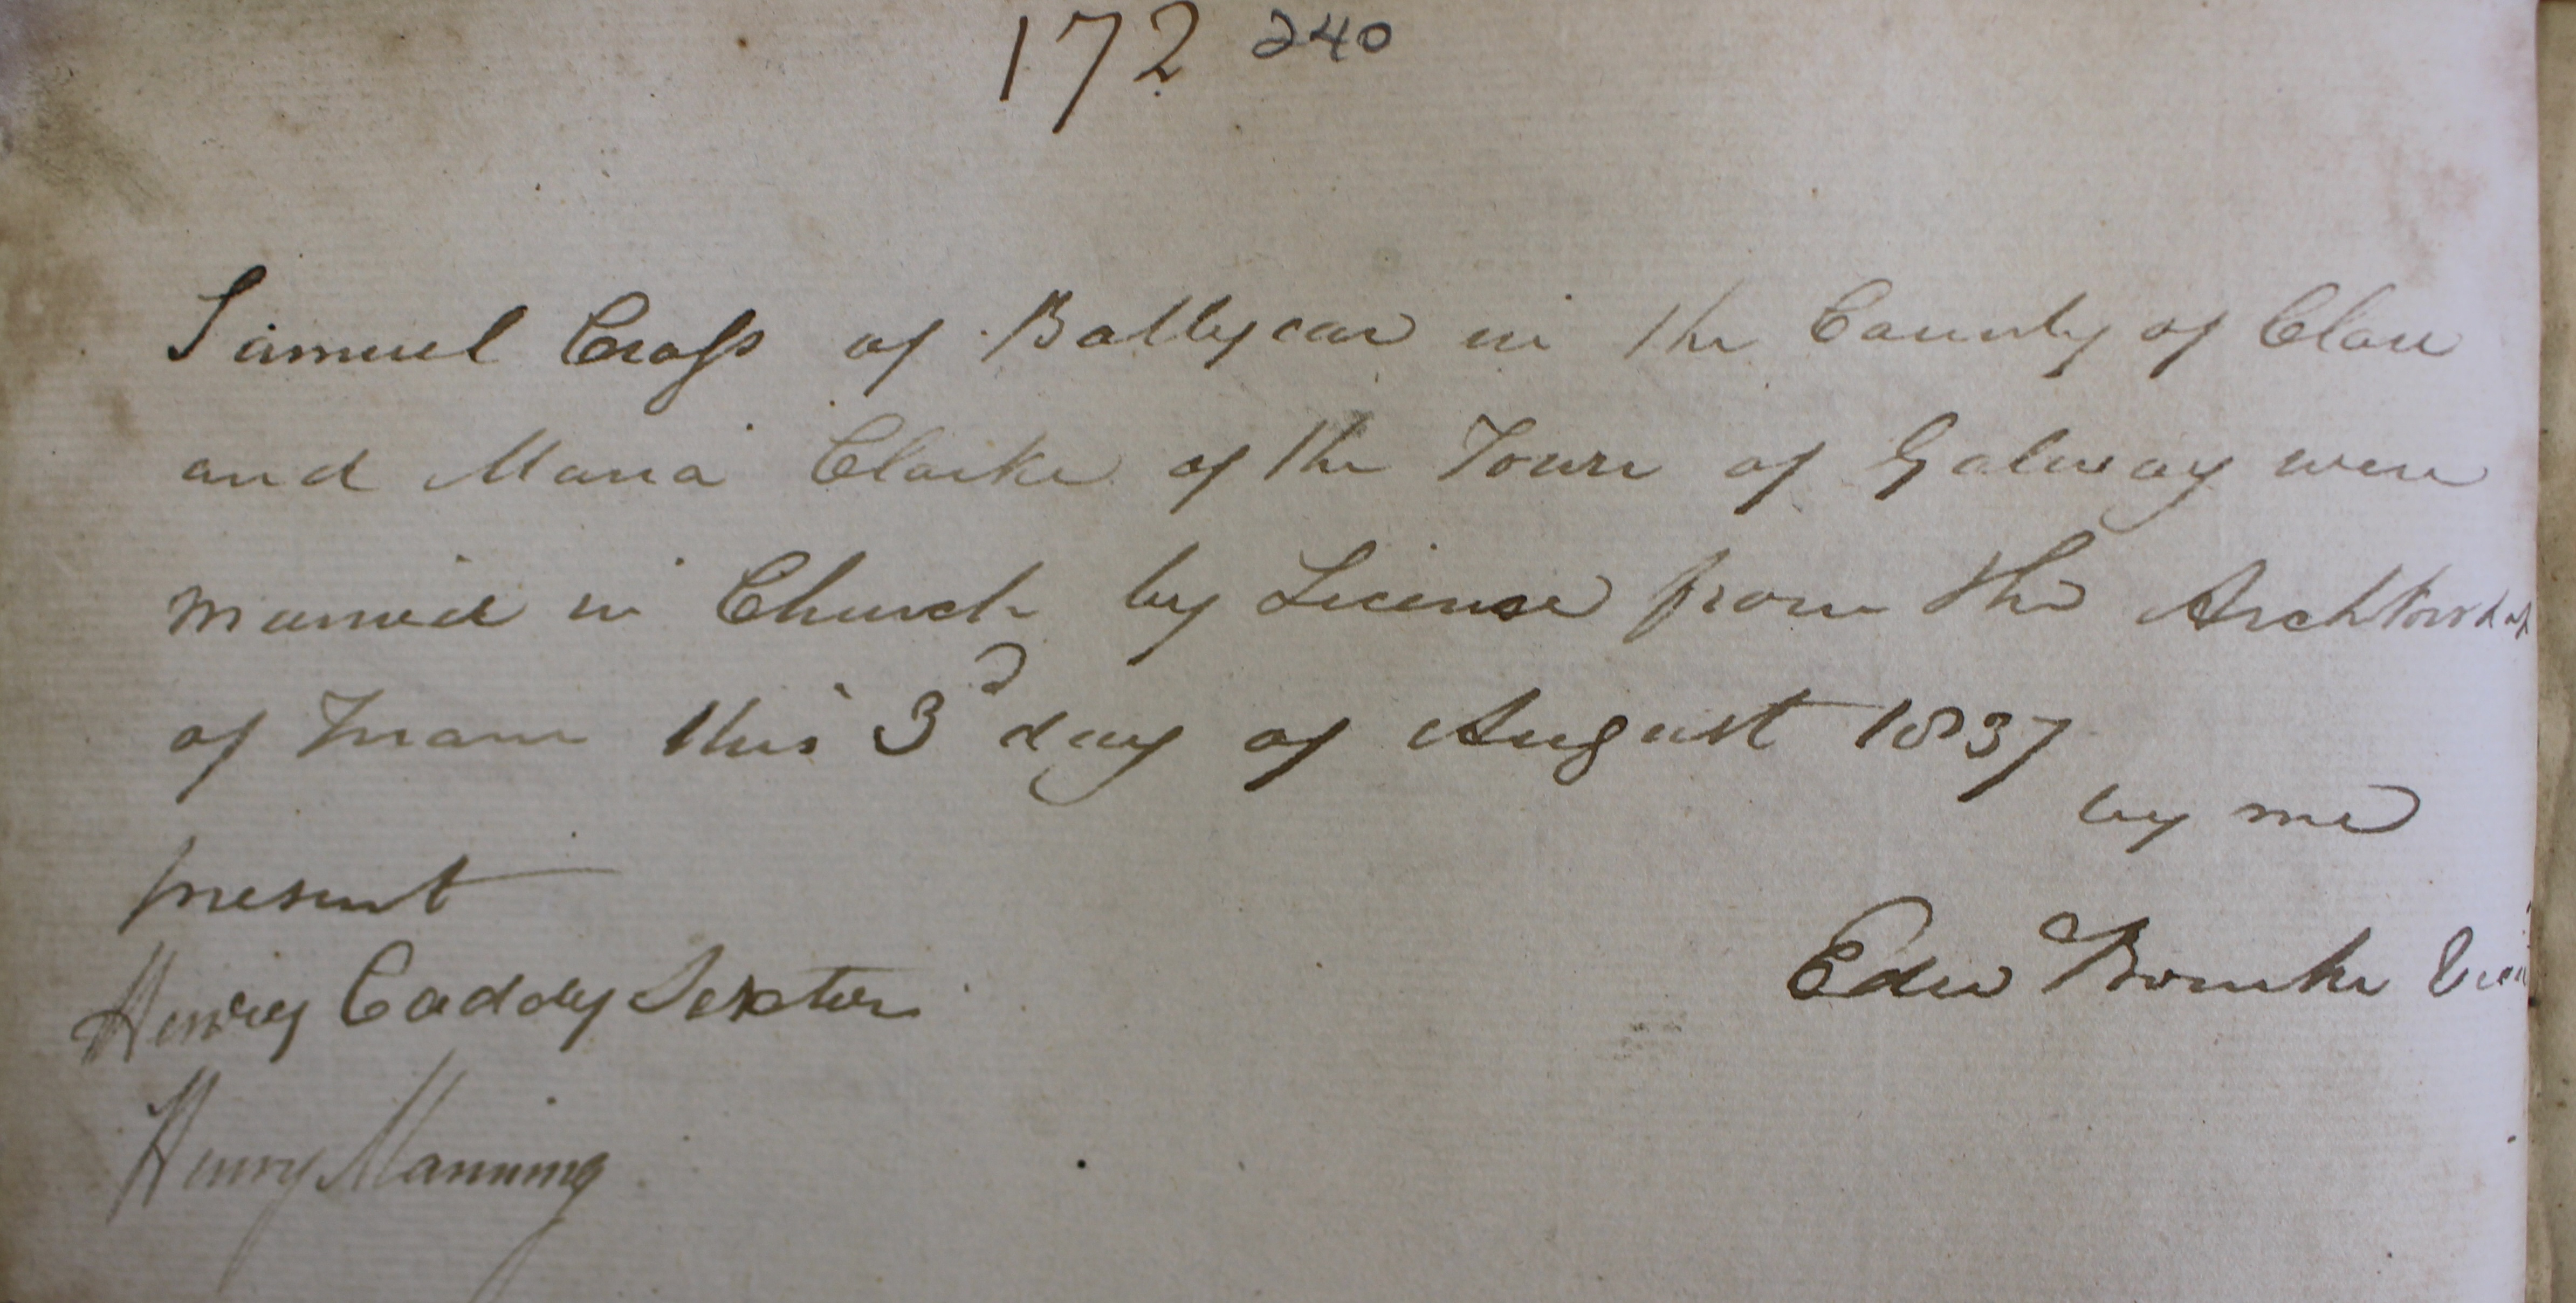 172 240
Samuel Cross of Ballycar in the County of Clare
and Maria Clarke of the Town of Galway were
married in Church by License from the Archbishop
of Tuam this 3d day of August 1837
by me
present
Edw Bourke
Henry Caddy Sexton
Henry Manning